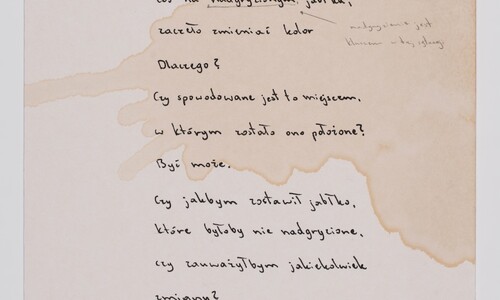 coś na nadgryzionym jabłku,
nadgryzienie jest
zaczęło zmieniać kolor
kluczem w tej
Dlaczego?
Czy spowodowane jest to miejscem,
w którym zostało ono płożone?
Być może.
Czy jakbym zostawił jabłko,
które byłoby nie nadgryzione,
czy zauważyłbym jakiekolwiek
zmiany?